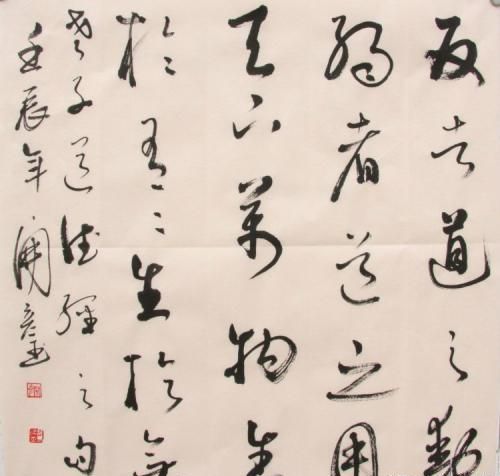 反者道之動
弱者道之用
天下萬物生
於有〻生於無
老子道德經之句
壬辰年